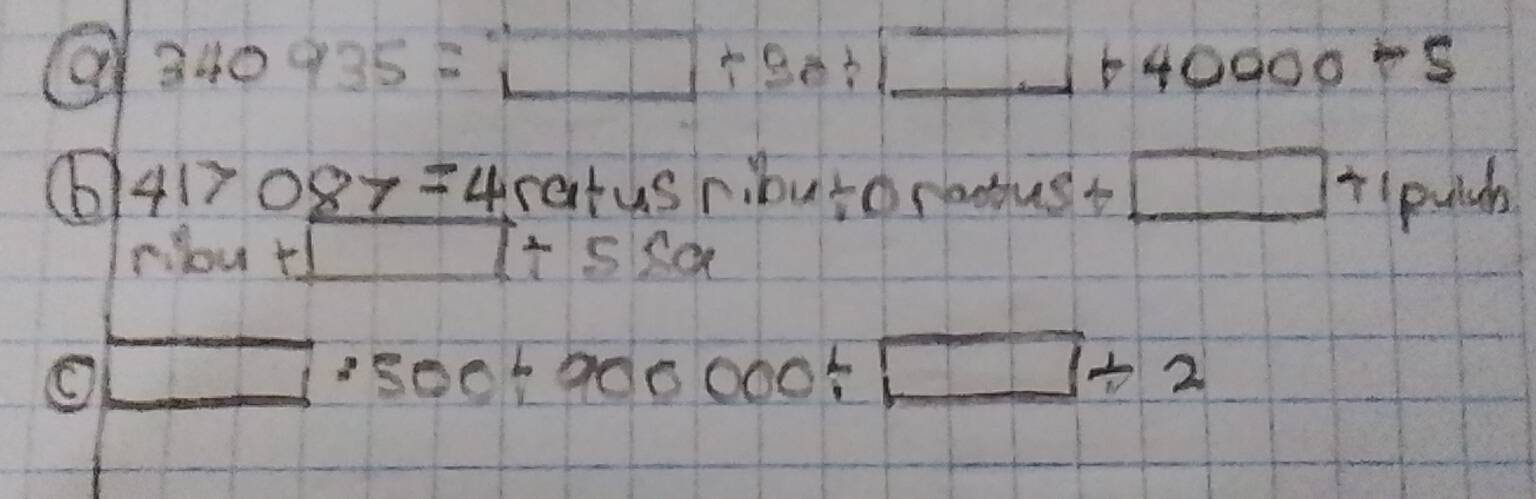 a 340 935 = + 30 + + 40000 + 5
b 417 087 = 4 ratus ribu + 0 ratus + + 1 puluh
ribu + + 5 Sa
c . 500 + 900 000 + + 2